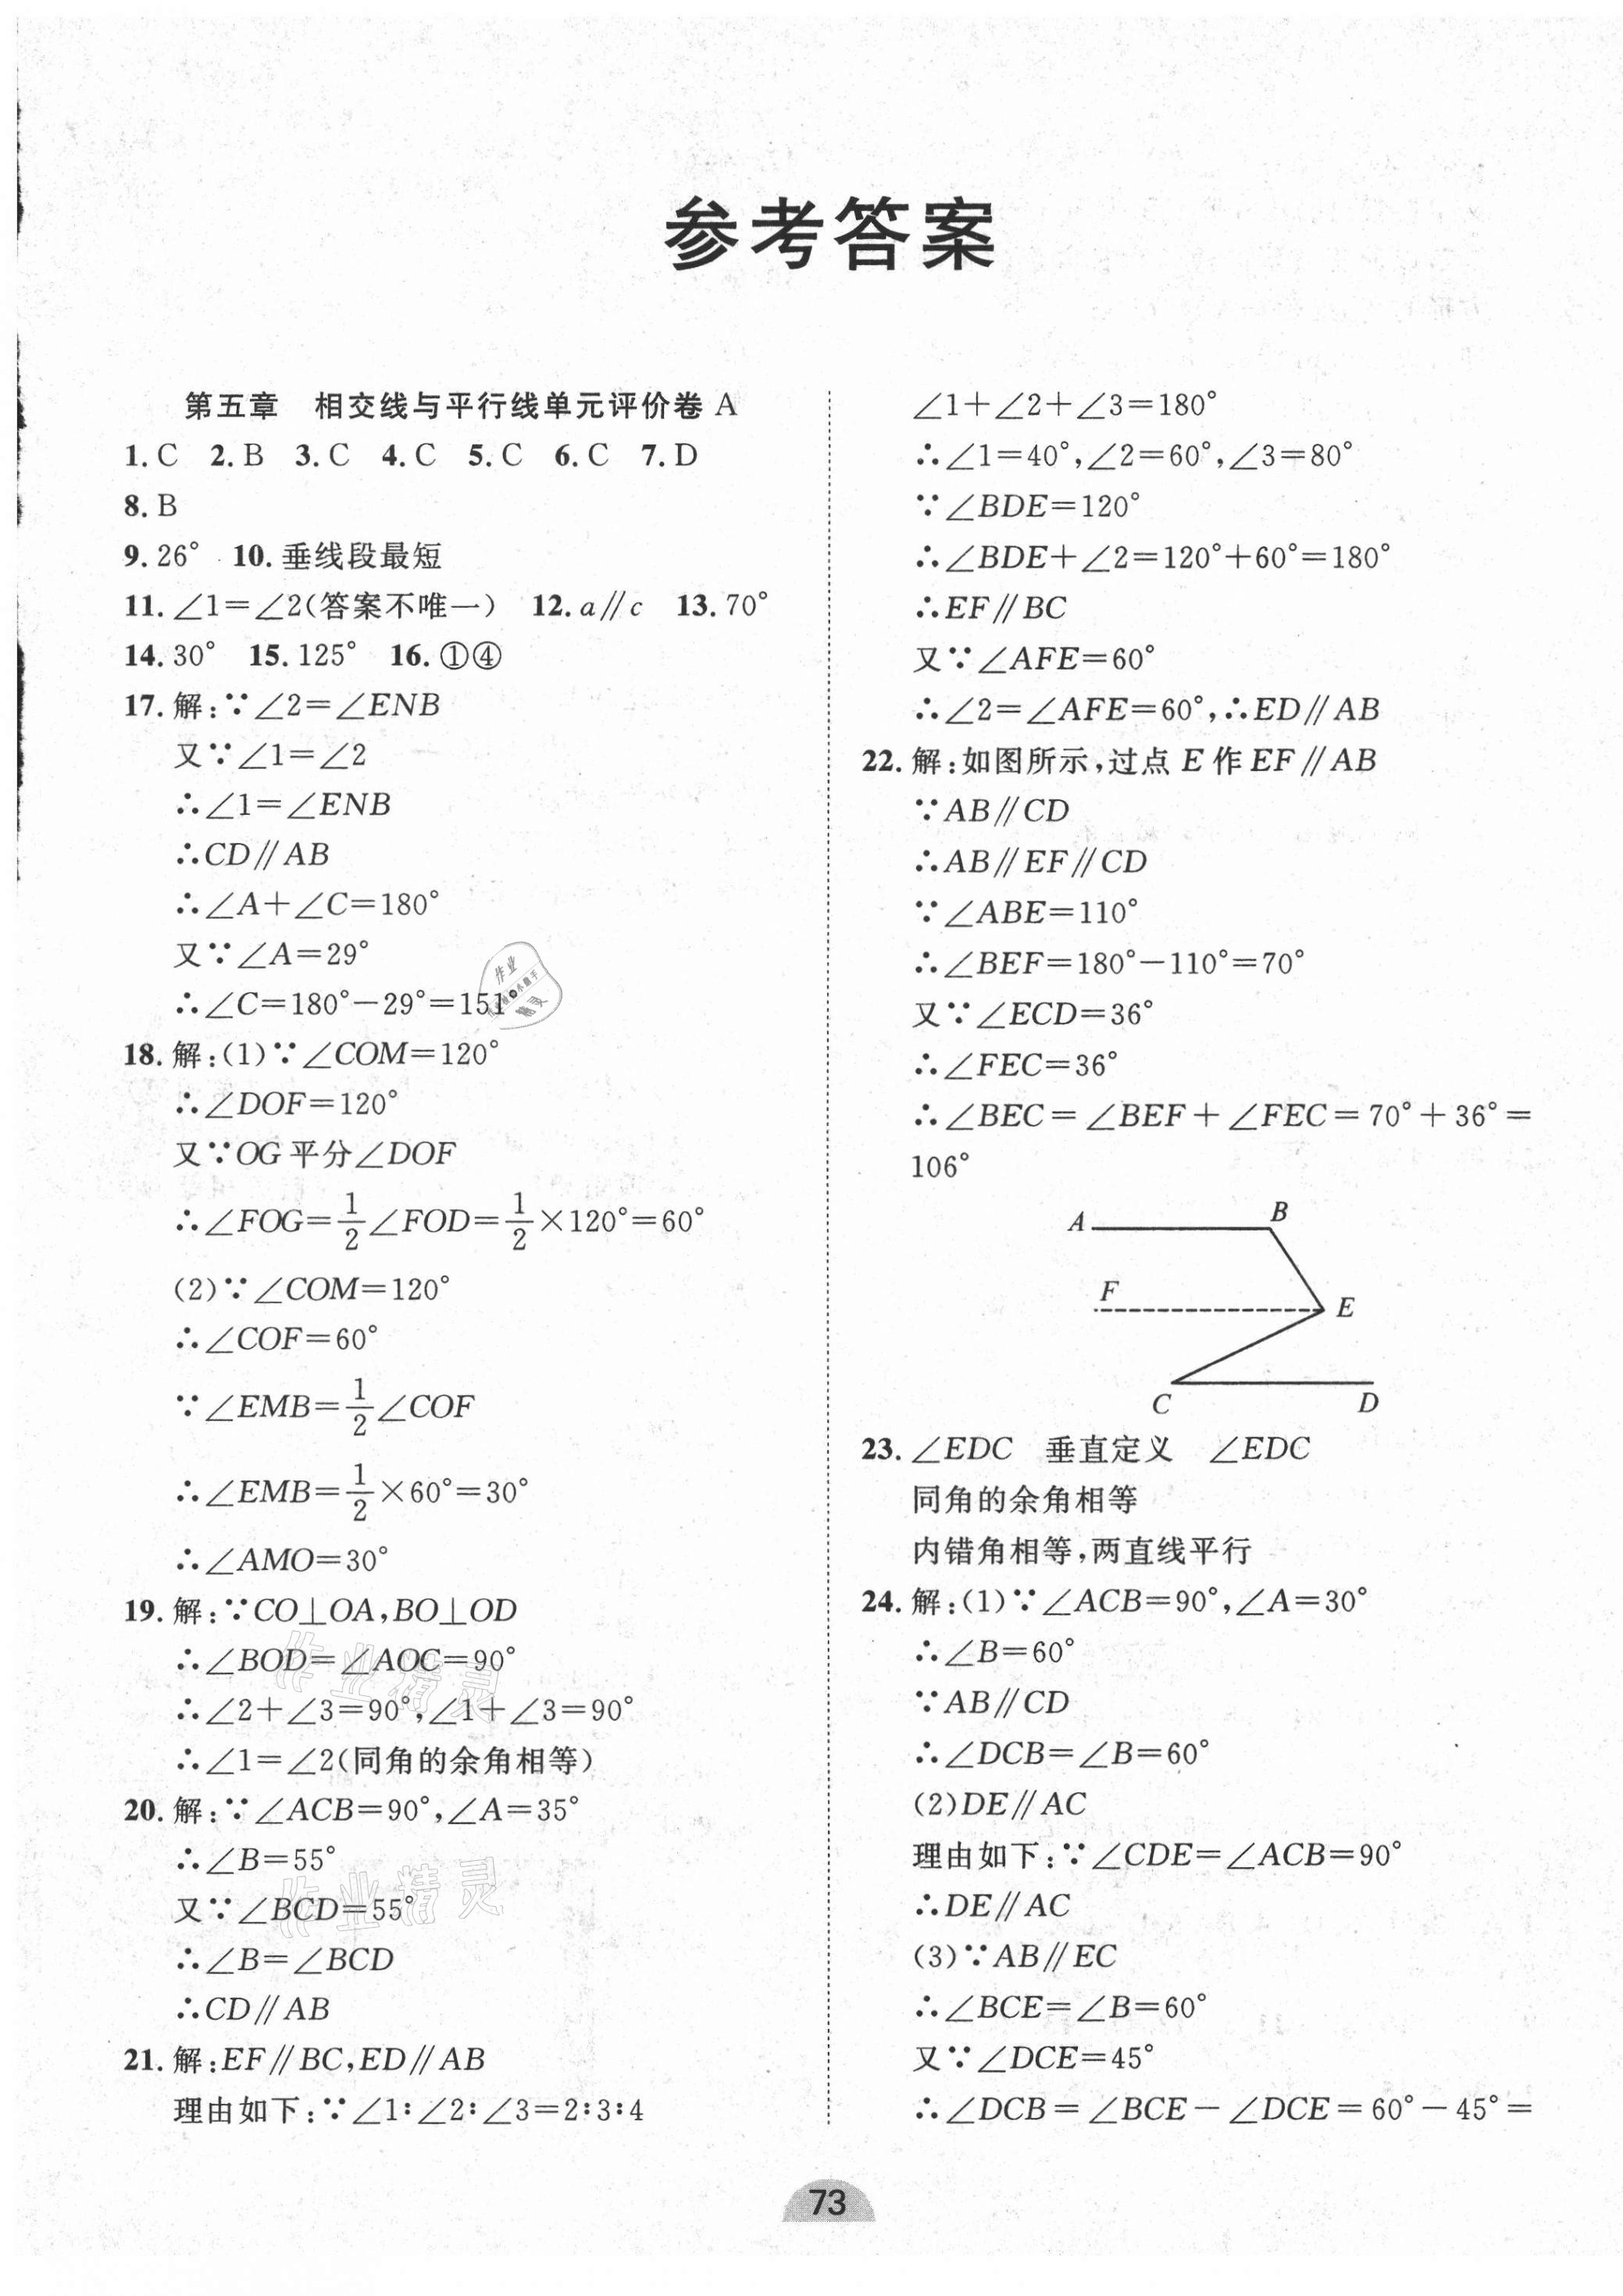 参考答案
第五章 相交线与平行线单元评价卷 A
1. C 2. B 3. C 4. C 5. C 6. C 7. D
8. B
9. 26° 10. 垂线段最短
11. ∠1=∠2(答案不唯一) 12. a∥c 13. 70°
14. 30° 15. 125° 16. ①④
17. 解:∵∠2=∠ENB
又∵∠1=∠2
∴∠1=∠ENB
∴CD∥AB
∴∠A+∠C=180°
又∵∠A=29°
∴∠C=180°-29°=151
18. 解:(1)∵∠COM=120°
∴∠DOF=120°
又∵OG 平分∠DOF
∴∠FOG=1/2∠FOD=1/2×120°=60°
(2)∵∠COM=120°
∴∠COF=60°
∵∠EMB=1/2∠COF
∴∠EMB=1/2×60°=30°
∴∠AMO=30°
19. 解:∵CO⊥OA,BO⊥OD
∴∠BOD=∠AOC=90°
∴∠2+∠3=90°,∠1+∠3=90°
∴∠1=∠2(同角的余角相等)
20. 解:∵∠ACB=90°,∠A=35°
∴∠B=55°
又∵∠BCD=55°
∴∠B=∠BCD
∴CD∥AB
21. 解:EF∥BC,ED∥AB
理由如下:∵∠1∶∠2∶∠3=2∶3∶4
∠1+∠2+∠3=180°
∴∠1=40°,∠2=60°,∠3=80°
∵∠BDE=120°
∴∠BDE+∠2=120°+60°=180°
∴EF∥BC
又∵∠AFE=60°
∴∠2=∠AFE=60°,∴ED∥AB
22. 解:如图所示,过点 E 作 EF∥AB
∵AB∥CD
∴AB∥EF∥CD
∵∠ABE=110°
∴∠BEF=180°-110°=70°
又∵∠ECD=36°
∴∠FEC=36°
∴∠BEC=∠BEF+∠FEC=70°+36°=
106°
A B
F
E
C D
23. ∠EDC 垂直定义 ∠EDC
同角的余角相等
内错角相等,两直线平行
24. 解:(1)∵∠ACB=90°,∠A=30°
∴∠B=60°
∵AB∥CD
∴∠DCB=∠B=60°
(2)DE∥AC
理由如下:∵∠CDE=∠ACB=90°
∴DE∥AC
(3)∵AB∥EC
∴∠BCE=∠B=60°
又∵∠DCE=45°
∴∠DCB=∠BCE-∠DCE=60°-45°=
73
作业精灵
作业精灵